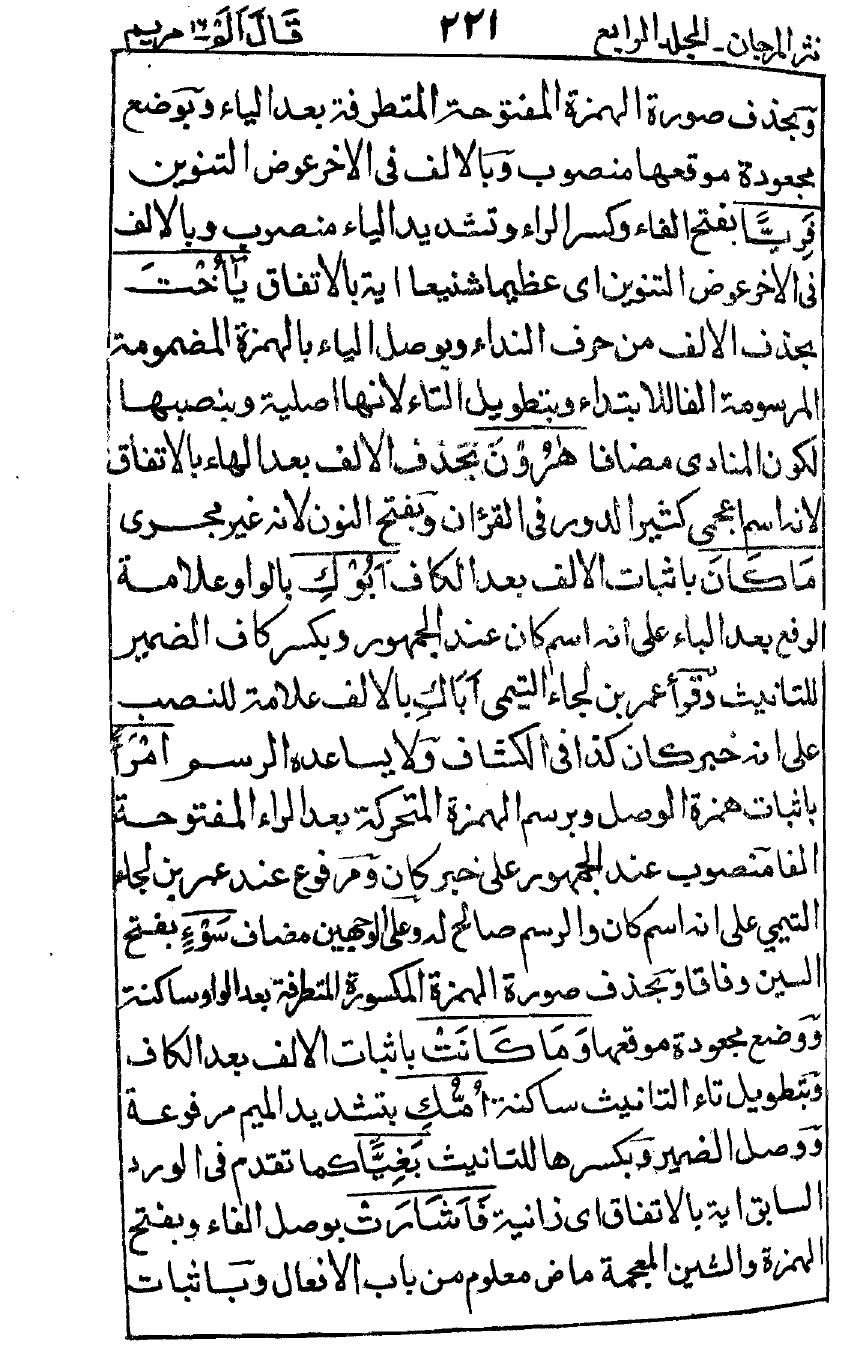 نثر المرجان۔ المجلد الرابع ٢٢١ قَالَ اَلَمْ ١٦ مريم
وَبحذف صورة الهمزة المفتوحة المتطرفة بعد الياء وبوضع
مجعودة موقعها منصوب وَبالالف فى الاخر عوض التنوين
فَرِيًّا بفتح الفاء وكسر الراء وتشديد الياء منصوب وبالالف
فى الاخر عوض التنوين اى عظيما شنيعا اية بالاتفاق يٰٓاُخْتَ
بحذف الالف من حرف النداء وبوصل الياء بالهمزة المضمومة
المرسومة الفا للابتداء وبتطويل التاء لانها اصلية وبنصبها
لكون المنادى مضافا هٰرُوْنَ بَحذف الالف بعد الهاء بالاتفاق
لانه اسم اعجمى كثير الدور فى القرءان وَبفتح النون لانه غير مجرى
مَا كَانَ باثبات الالف بعد الكاف اَبُوْكِ بالواو علامة
الرفع بعد الباء على انه اسم كان عند الجمهور وبكسر كاف الضمير
للتانيث وَقرأ عمر بن لجاء التيمى اَبَاكِ بالالف علامة للنصب
على انه خبر كان كذا فى الكشاف وَلا يساعده الرسم امْرَاَ
باثبات همزة الوصل وبرسم الهمزة المتحركة بعد الراء المفتوحة
الفا مَنصوب عند الجمهور على خبر كان وَمرفوع عند عمر بن لجاء
التيمي على انه اسم كان والرسم صالح له وعلى الوجهين مضاف سَوْءٍ بفتح
السين وفاقا وَبحذف صورة الهمزة المكسورة المتطرفة بعد الواو ساكنة
وَوضع مجعودة موقعها وَمَا كَانَتْ باثبات الالف بعد الكاف
وَبتطويل تاء التانيث ساكنة اُمُّكِ بتشديد الميم مرفوعة
وَوصل الضمير وَبكسرها للتانيث بَغِيًّا كما تقدم فى الورد
السابق اية بالاتفاق اى زانية فَاَشَارَتْ بوصل الفاء وبفتح
الهمزة والشين المعجمة ماض معلوم من باب الافعال وَباثبات